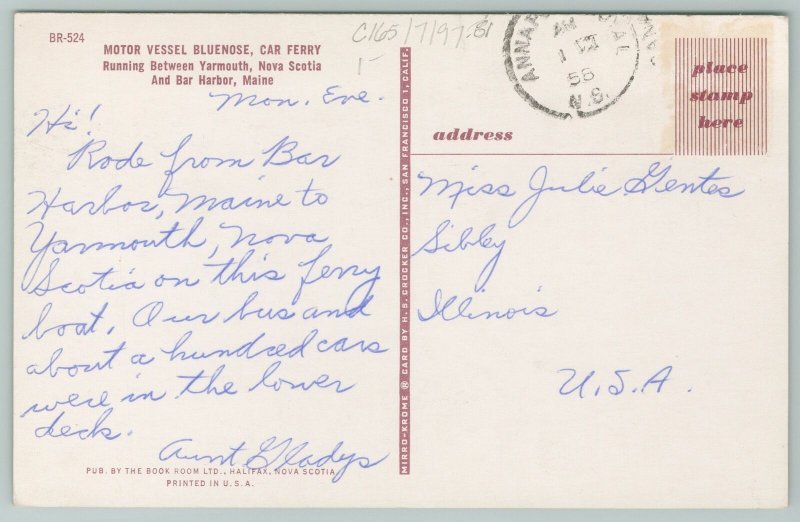 BR-524
MOTOR VESSEL BLUENOSE, CAR FERRY
Running Between Yarmouth, Nova Scotia
And Bar Harbor, Maine
Mon. Eve.
Hi!
Rode from Bar
Harbor, Maine to
Yarmouth, Nova
Scotia on this ferry
boat. Our bus and
about a hundred cars
were in the lower
deck.
Aunt Gladys
PUB. BY THE BOOK ROOM LTD., HALIFAX, NOVA SCOTIA
PRINTED IN U.S.A.
MIRRO-KROME ® CARD BY H. S. CROCKER CO., INC., SAN FRANCISCO 1, CALIF.
AM
N.S.
place
stamp
here
address
Miss Julie Gentes
Sibley
Illinois
U.S.A.